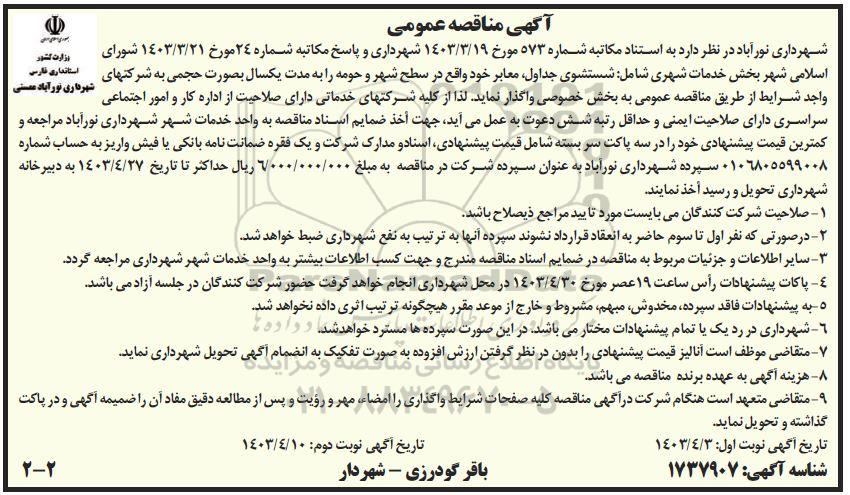 آگهی مناقصه عمومی
وزارت کشور
استانداری فارس
شهرداری نورآباد ممسنی
شهرداری نورآباد در نظر دارد به استناد مکاتبه شماره ۵۷۳ مورخ ۱۴۰۳/۳/۱۹ شهرداری و پاسخ مکاتبه شماره ۲۴مورخ ۱۴۰۳/۳/۲۱ شورای
اسلامی شهر بخش خدمات شهری شامل: شستشوی جداول، معابر خود واقع در سطح شهر و حومه را به مدت یکسال بصورت حجمی به شرکتهای
واجد شرایط از طریق مناقصه عمومی به بخش خصوصی واگذار نماید. لذا از کلیه شرکتهای خدماتی دارای صلاحیت از اداره کار و امور اجتماعی
سراسری دارای صلاحیت ایمنی و حداقل رتبه شش دعوت به عمل می آید، جهت أخذ ضمایم اسناد مناقصه به واحد خدمات شهر شهرداری نورآباد مراجعه و
کمترین قیمت پیشنهادی خود را در سه پاکت سر بسته شامل قیمت پیشنهادی، اسناد و مدارک شرکت و یک فقره ضمانت نامه بانکی یا فیش واریز به حساب شماره
۰۱۰۶۸۰۵۵۹۹۰۰۸ سپرده شهرداری نورآباد به عنوان سپرده شرکت در مناقصه به مبلغ ۶/۰۰۰/۰۰۰/۰۰۰ ریال حداکثر تا تاریخ ۱۴۰۳/۴/۲۷ به دبیرخانه
شهرداری تحویل و رسید أخذ نمایند.
۱- صلاحیت شرکت کنندگان می بایست مورد تایید مراجع ذیصلاح باشد.
۲-درصورتی که نفر اول تا سوم حاضر به انعقاد قرارداد نشوند سپرده آنها به ترتیب به نفع شهرداری ضبط خواهد شد.
۳-سایر اطلاعات و جزئیات مربوط به مناقصه در ضمایم اسناد مناقصه مندرج و جهت کسب اطلاعات بیشتر به واحد خدمات شهر شهرداری مراجعه گردد.
۴- پاکات پیشنهادات رأس ساعت ۱۹عصر مورخ ۱۴۰۳/۴/۳۰ در محل شهرداری انجام خواهد گرفت حضور شرکت کنندگان در جلسه آزاد می باشد.
۵-به پیشنهادات فاقد سپرده، مخدوش، مبهم، مشروط و خارج از موعد مقرر هیچگونه ترتیب اثری داده نخواهد شد.
۶-شهرداری در رد یک یا تمام پیشنهادات مختار می باشد. در این صورت سپرده ها مسترد خواهدشد.
۷-متقاضی موظف است آنالیز قیمت پیشنهادی را بدون در نظر گرفتن ارزش افزوده به صورت تفکیک به انضمام آگهی تحویل شهرداری نماید.
۸-هزینه آگهی به عهده برنده مناقصه می باشد.
۹-متقاضی متعهد است هنگام شرکت درآگهی مناقصه کلیه صفحات شرایط واگذاری را امضاء، مهر و رؤیت و پس از مطالعه دقیق مفاد آن را ضمیمه آگهی و در پاکت
گذاشته و تحویل نماید.
تاریخ آگهی نوبت اول: ۱۴۰۳/۴/۳ تاریخ آگهی نوبت دوم: ۱۴۰۳/۴/۱۰
شناسه آگهی: ۱۷۳۷۹۰۷ باقر گودرزی - شهردار ۲-۲
ParsNamadData
پایگاه اطلاع رسانی مناقصه و مزایده
۰۲۱-۸۸۳۴۹۶۷۰-۵